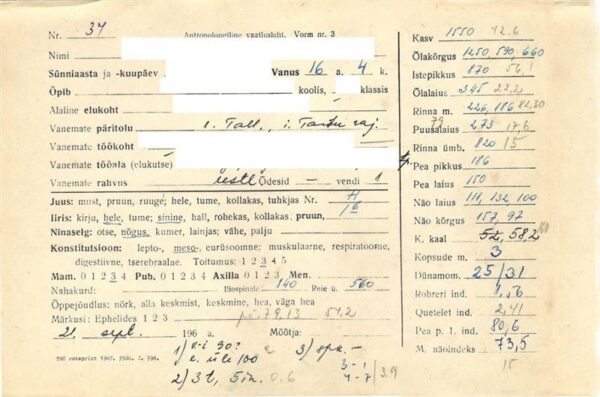 Nr. 34 Antropoloogiline vaatlusleht. Vorm nr. 3
Nimi
Sünniaasta ja -kuupäev Vanus 16 a. 4 k.
Õpib koolis, klassis
Alaline elukoht
Vanemate päritolu e. Tall., i. Tartu raj.
Vanemate töökoht
Vanemate tööala (elukutse)
Vanemate rahvus eestl Õdesid — vendi 1
Juus: must, pruun, ruuge; hele, tume, kollakas, tuhkjas Nr.
Iiris: kirju, hele, tume; sinine, hall, rohekas, kollakas, pruun,
Ninaselg: otse, nõgus, kumer, lainjas; vähe, palju
Konstitutsioon: lepto-, meso-, eurüsoomne; muskulaarne, respiratoorne,
digestiivne, tserebraalne. Toitumus: 1 2 3 4 5
Mam. 0 1 2 3 4 Pub. 0 1 2 3 4 Axilla 0 1 2 3 Men.
Nahakurd: Iliospinale 140 Reie ü. 560
Õppejõudlus: nõrk, alla keskmist, keskmine, hea, väga hea
Märkusi: Ephelides 1 2 3 79,13 54,2
21. sept. 196 a. Mõõtja:
1) 90? e. üle 100 3) spa. –
2) 3t, 5in. 0.6 3-1
4-7 3.9
TRÜ rotaprint 1967. 3500. T. 598.
Kasv 1550 42,6
Õlakõrgus 1250, 590, 660
Istepikkus 870 56,1
Õlalaius 345 22,2
Rinna m. 226, 186 82,30
79
Puusalaius 273 17,6
Rinna ümb. 820 15
Pea pikkus 186
Pea laius 150
Näo laius 111, 132, 100
Näo kõrgus 157, 97
K. kaal 52, 58,2
Kopsude m. 3
Dünamom. 25/31
Rohreri ind. 1,56
Quetelet ind. 2,41
Pea p. l. ind. 80,6
M. näoindeks 73,5
15